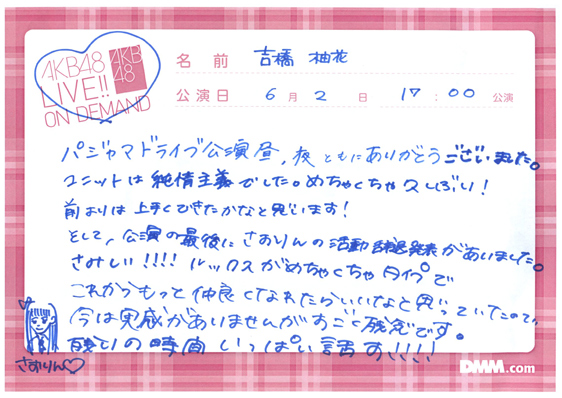 AKB48
LIVE!!
ON DEMAND
AKB
48
名前 吉橋 柚花
公演日 6月2日 17:00公演
パジャマドライブ公演昼,夜ともにありがとうございました。
ユニットは純情主義でした。めちゃくちゃ久しぶり!
前よりは上手くできたかなと思います!
そして、公演の最後にさおりんの活動辞退発表がありました。
さみしい!!!! ルックスがめちゃくちゃタイプで
これからもっと仲良くなれたらいいなと思っていたので
今は実感がありませんがすごく残念です。
残りの時間いっぱい話す!!!!
さおりん♡
DMM.com